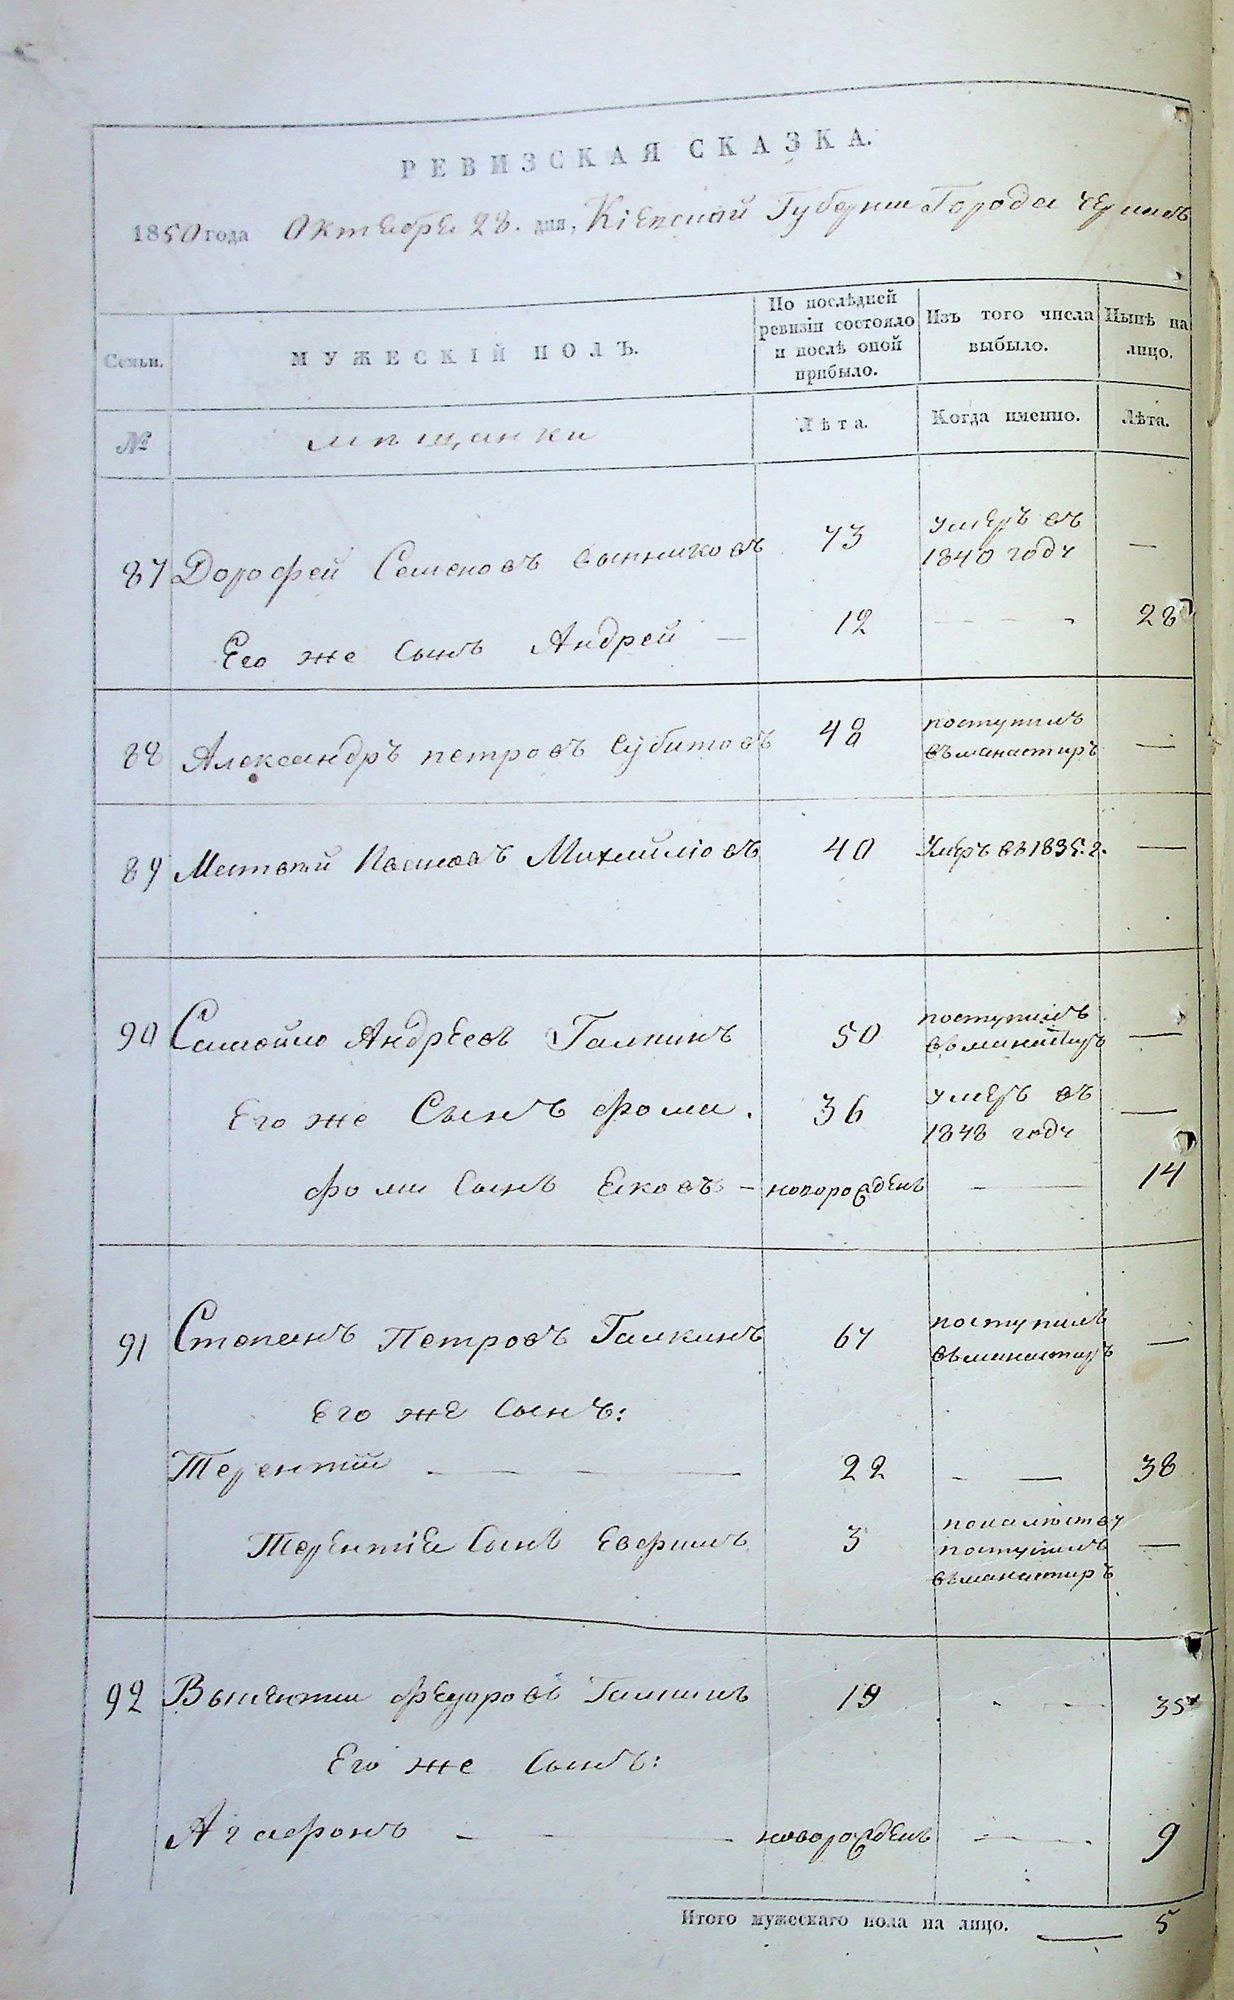 РЕВИЗСКАЯ СКАЗКА.
1850 года Октебре 28. дня, Кіевской Губернии Города
Семьи.
МУЖЕСКІЙ ПОЛЪ.
По послѣдней ревизіи состояло и послѣ оной прибыло.
Изъ того числа выбыло.
Нынѣ на лицо.
№
мѣщанки
Лѣта.
Когда именно.
Лѣта.
87 Дорофей Семеновъ 73 умеръ въ 1840 году —
Его же сынъ Андрей — 12 - - - - 28
88 Александръ петровъ 48 поступилъ въ манастиръ —
89 Матвей Михайловъ 40 Умеръ въ 1835. г. —
90 Самойло Андреевъ Галкинъ 50 поступилъ въ манастиръ —
Его же Сынъ фома. 36 умеръ въ 1848 году —
фоми сынъ — новорожденъ — 14
91 Степанъ Петровъ Галкинъ 67 поступилъ въ манастиръ —
Его же сынъ:
Терентий — — — — 22 - — 38
Терентіе сынъ Ефримъ 3 поступилъ въ манастиръ —
92 Галкинъ 19 - - - 35
Его же сынъ:
Агафонъ — - — — новорожденъ - - - - 9
Итого мужескаго пола на лицо. — 5